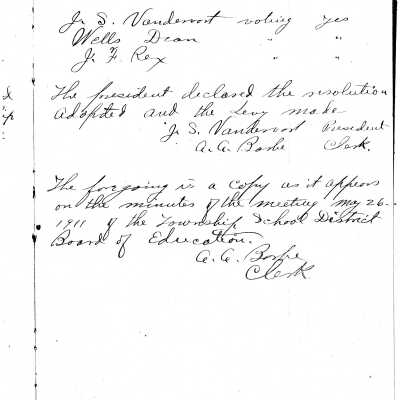 J. S. Vandervort voting yes
Wells Dean " "
J. F. Rex " "
The president declared the resolution
adopted and the Levy made
J. S. Vandervort President
A. A. Clerk.
The forgoing is a copy as it appears
on the minutes of the meeting May 26-
1911 of the Township School District
Board of Education.
A. A.
Clerk